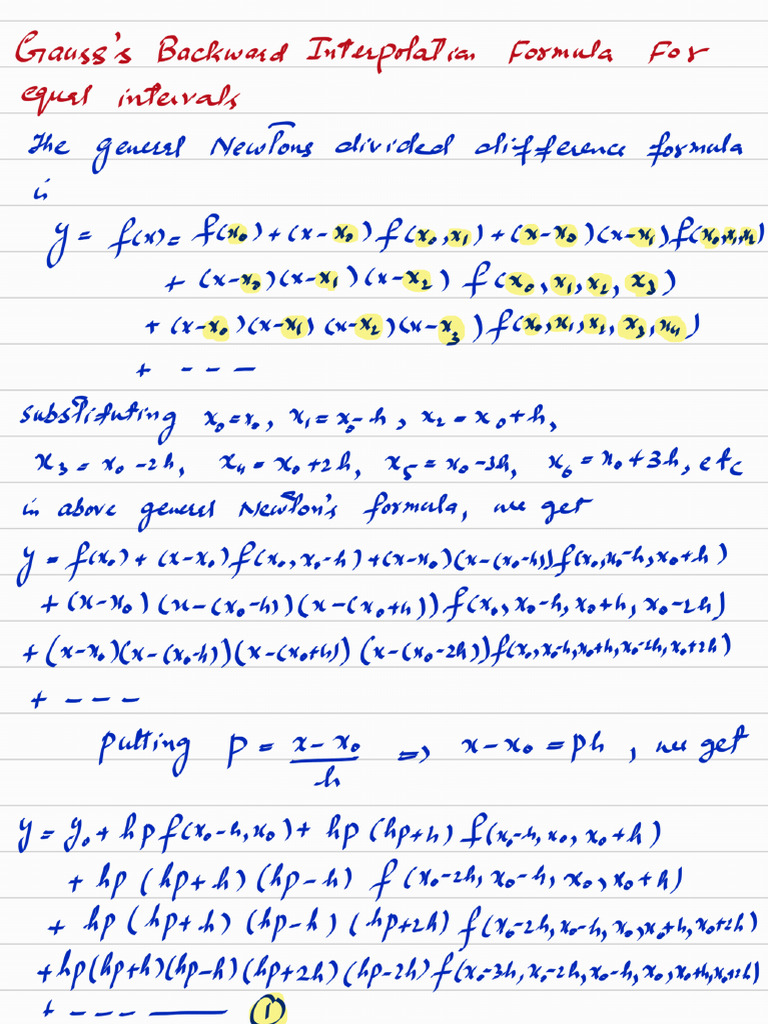 Gauss's Backward Interpolation Formula For
equal intervals
The general Newtons divided difference formula
is
y = f(x) = f(x₀) + (x-x₀) f(x₀,x₁) + (x-x₀)(x-x₁) f(x₀,x₁,x₂)
+ (x-x₀)(x-x₁)(x-x₂) f(x₀,x₁,x₂,x₃)
+ (x-x₀)(x-x₁)(x-x₂)(x-x₃) f(x₀,x₁,x₂,x₃,x₄)
+ ---
substituting x₀=x₀, x₁=x₀-h, x₂=x₀+h,
x₃=x₀-2h, x₄=x₀+2h, x₅=x₀-3h, x₆=x₀+3h, etc
in above general Newton's formula, we get
y = f(x₀) + (x-x₀) f(x₀,x₀-h) + (x-x₀)(x-(x₀-h)) f(x₀,x₀-h,x₀+h)
+ (x-x₀)(x-(x₀-h))(x-(x₀+h)) f(x₀,x₀-h,x₀+h,x₀-2h)
+ (x-x₀)(x-(x₀-h))(x-(x₀+h))(x-(x₀-2h)) f(x₀,x₀-h,x₀+h,x₀-2h,x₀+2h)
+ ---
Putting p = x-x₀/h ⇒ x-x₀ = ph, we get
y = y₀ + hp f(x₀-h,x₀) + hp (hp+h) f(x₀-h,x₀,x₀+h)
+ hp (hp+h) (hp-h) f(x₀-2h,x₀-h,x₀,x₀+h)
+ hp (hp+h) (hp-h) (hp+2h) f(x₀-2h,x₀-h,x₀,x₀+h,x₀+2h)
+ hp(hp+h)(hp-h)(hp+2h)(hp-2h) f(x₀-3h,x₀-2h,x₀-h,x₀,x₀+h,x₀+2h)
+ ---- ①